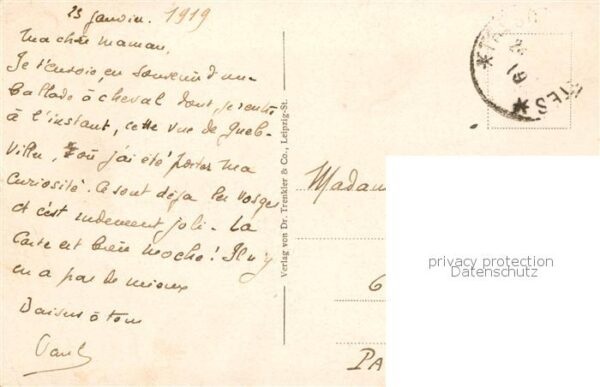 23 janvier. 1919
Ma chère maman,
Je t'envoie, en souvenir d'une
ballade à cheval dont je rentre
à l'instant, cette vue de Gueb-
viller, où j'ai été porter ma
curiosité. Ce sont déjà les Vosges
et c'est rudement joli. La
carte est bien moche! Il n'y
en a pas de mieux
Baisers à tous
Paul
Verlag von Dr. Trenkler & Co., Leipzig-St.
TRESOR
19
POSTES
Madam
6
PA
privacy protection
Datenschutz